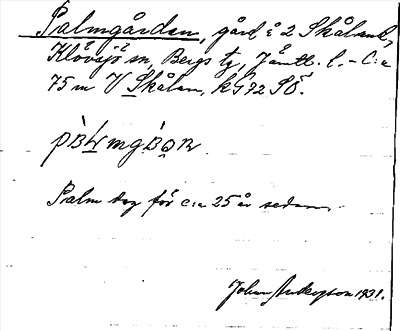 Palmgården, gård i 2 Skålan,
Klövsjö sn, Bergs tg, Jämtl. l. - C:a
75 m V Skålan, k 72 SÖ.
Palm dog för c:a 25 år sedan.
Johan Anderson 1931.